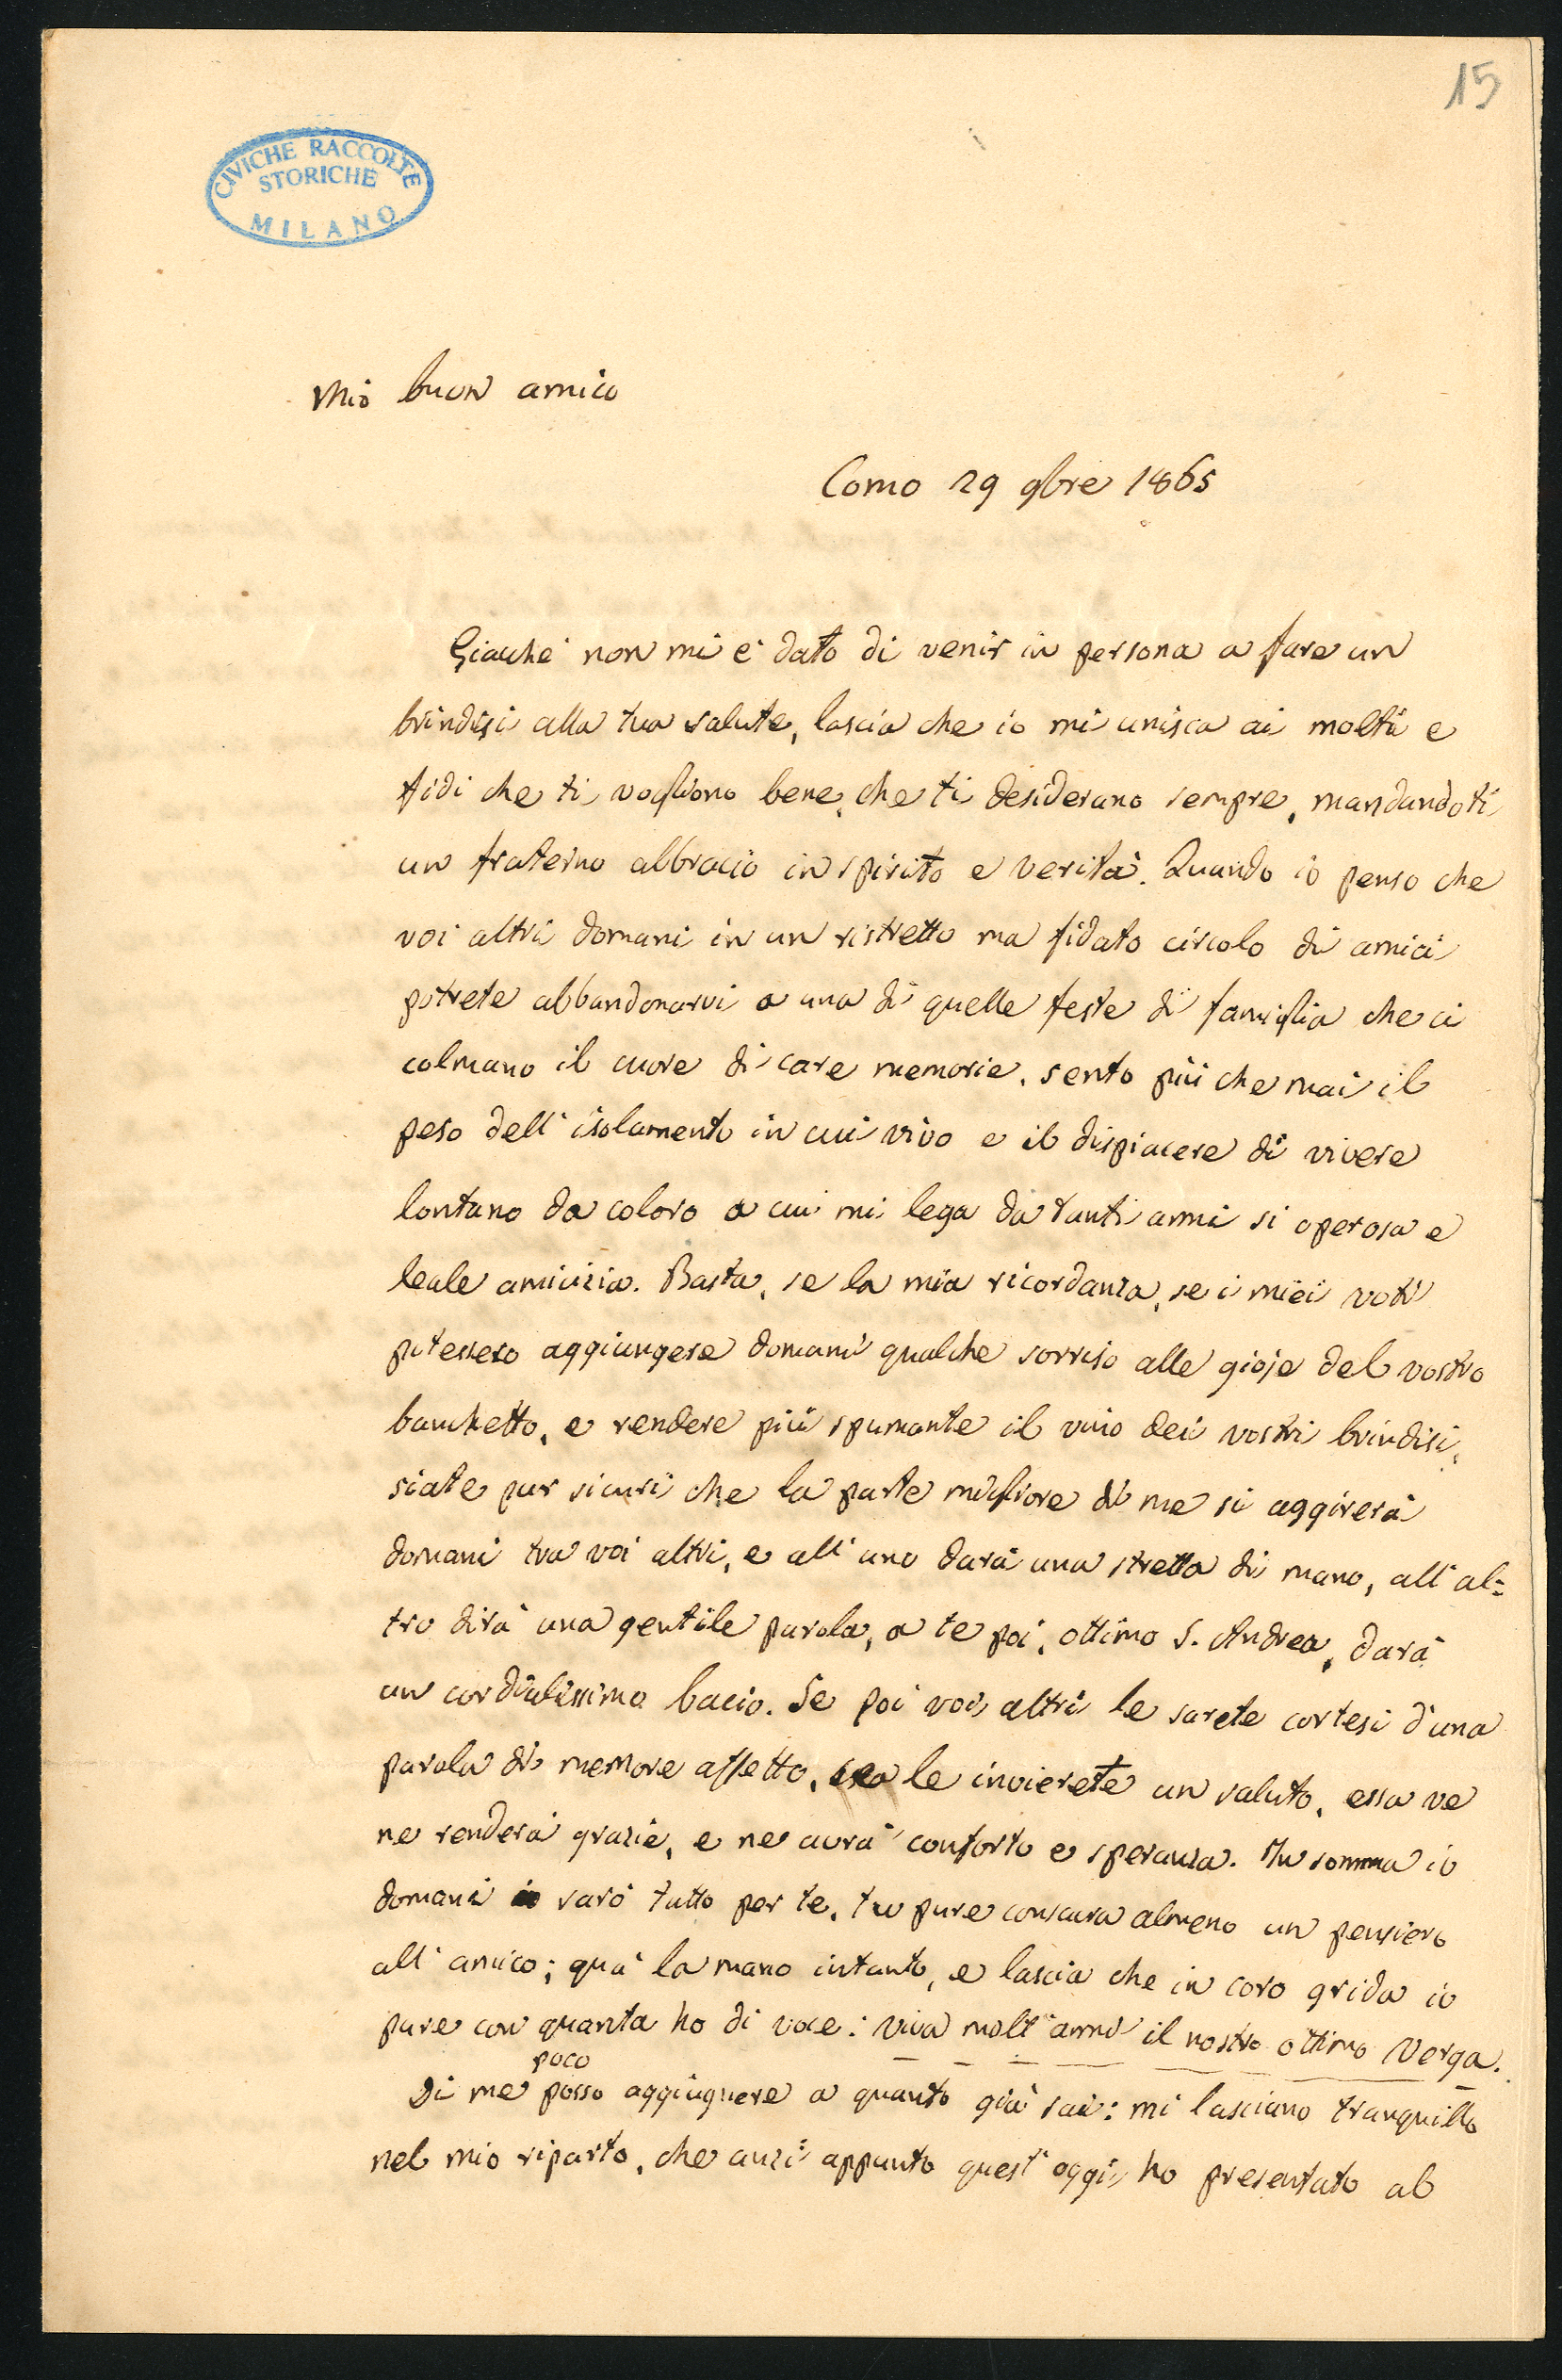 15
CIVICHE RACCOLTE
STORICHE
MILANO
Mio buon amico
Como 29 9bre 1865
Giacchè non mi è dato di venir in persona a fare un
brindisi alla tua salute, lascia che io mi unisca ai molti e
fidi che ti vogliono bene, che ti desiderano sempre, mandandoti
un fraterno abbraccio in spirito e verità. Quando io penso che
voi altri domani in un ristretto ma fidato circolo di amici
potrete abbandonarvi a una di quelle feste di famiglia che ci
colmano il cuore di care memorie, sento più che mai il
peso dell'isolamento in cui vivo e il dispiacere di vivere
lontano da coloro a cui mi lega da tanti anni si operosa e
leale amicizia. Basta, se la mia ricordanza, se i miei voti
potessero aggiungere domani qualche sorriso alle gioje del vostro
banchetto, e rendere più spumante il vino dei vostri brindisi,
siate pur sicuri che la parte migliore di me si aggirerà
domani tra voi altri, e all'uno darà una stretta di mano, all'al=
tro dirà una gentile parola, a te poi, ottimo S. Andrea, darà
un cordialissimo bacio. Se poi voi altri le sarete cortesi d'una
parola di memore affetto, le invierete un saluto, essa ve
ne renderà grazie, e ne avrà conforto e speranza. In somma io
domani sarò tutto per te, tu pure consacra almeno un pensiero
all'amico; quà la mano intanto, e lascia che in coro grida io
pure con quanta ho di voce: viva molt'anni il nostro ottimo Verga.
Di me poco posso aggiugnere a quanto già sai: mi lasciano tranquillo
nel mio riparto, che anzi appunto quest'oggi ho presentato al